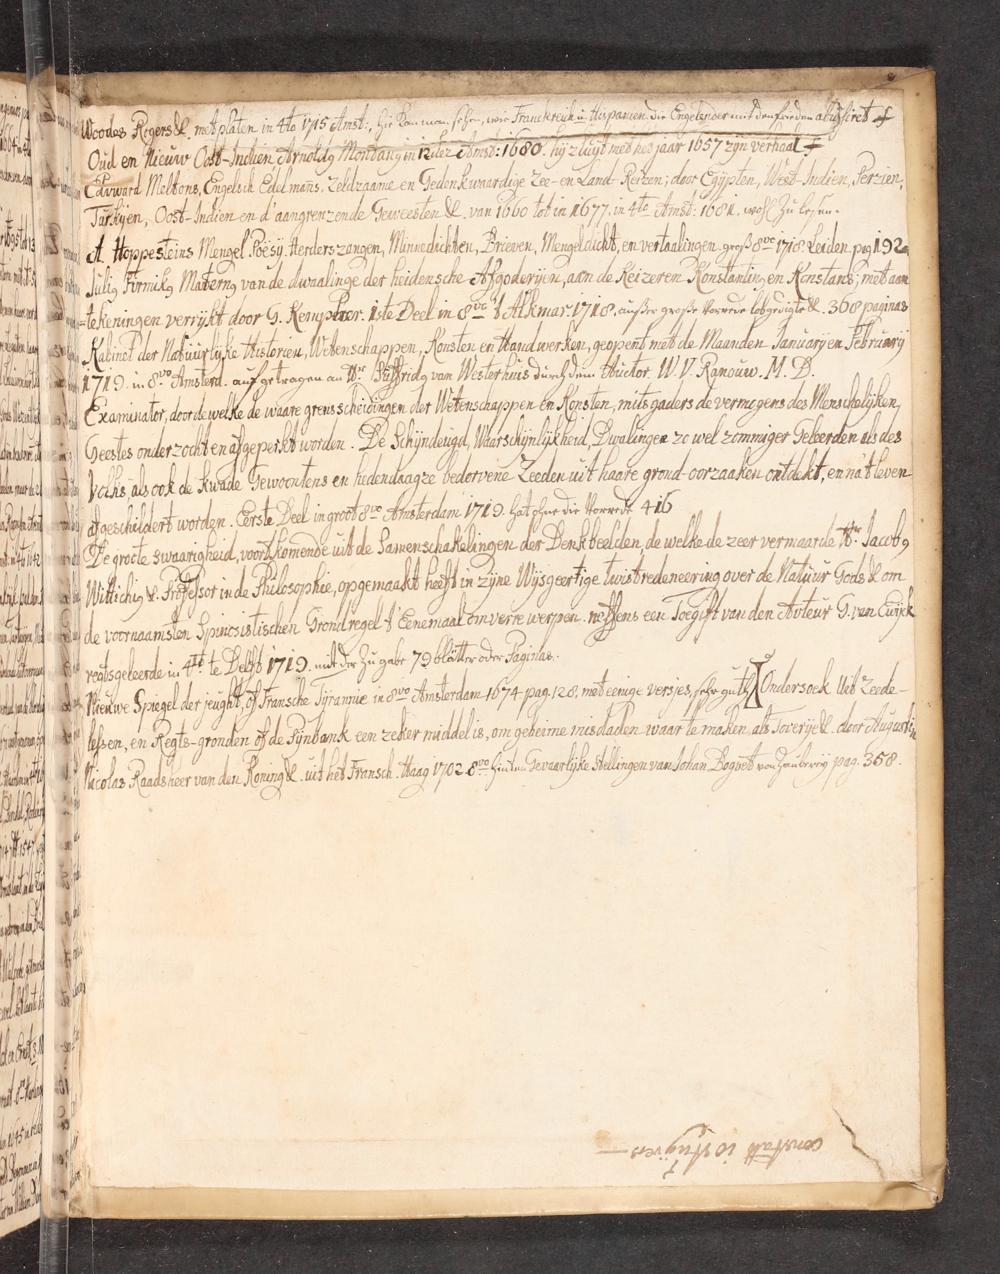 Woodes Rogers &. met platen in 4to 1715 Amst:, hie kan man sehen, wie Franckreijk u Hispanien die Engeländer mit dem frieden abusiret
Oud en Nieuw Oost-Indien Arnoldg Montang in 12dez Amst: 1680. hij zluijt met het jaar 1657 zijn verhaal
Edward Meltons, Engelsch Edelmans, Zeldzaame en Gedenkwaardige Zee- en Land-Reizen; door Egypten, West-Indien, Perzien,
Turkijen, Oost-Indien en d'aangrenzende Geweesten &. van 1660 tot in 1677. in 4to Amst: 1681. wohl zu lesen.
A Hoppesteins Mengel Poësy Herderszangen, Minnedichten, Brieven, Mengeldicht, en vertaalingen groß 8vo 1718 Leiden pag 192
Julig Firmikg Materng van de dwaalinge der heidensche Afgoderijen, aan de Keizeren Konstanting en Konstans; met aan
=tekeningen verrijkt door G. Kempher. 1ste Deel in 8vo 't Alkmar 1718. außer große Vorrede lobgedigte &. 368 paginas
Kabinet der Natuurlyke Historien, Wetenschappen, Konsten en Handwerken, geopent met de Maanden January en February
1719. in 8vo Amsterd. aufgetragen an Hr van Westerhuis durch dem Auctor W. V. Ranouw. M. D.
Examinator, door de welke de waare grensscheidingen der Wetenschappen en Konsten, mitsgaders de vermogens des Menschelijken
Geestes onderzocht en afgeperkt worden. De Schijndeugd, Waarschijnlijkheid, Dwalingen zo wel zommiger Geleerden als des
Volks, als ook de kwade Gewoontens en hedendaagze bedorvene Zeeden uit haare grond-oorzaaken ontdekt, en na't leven
afgeschildert worden. Eerste Deel in groot 8vo Amsterdam 1719. hat ohne die Vorrede 416
De groote swaarigheid, voortkomende uit de Samenschakelingen der Denkbeelden, de welke de zeer vermaarde Hr. Jacobg
Wittichig &. Professor in de Philosophie, opgemaakt heeft in zijne Wijsgeertige twistredeneering over de Natuur Gods & om
de voornaamsten Spinosistischen Grondregel t'Eenemaal omverre werpen. neffens een Toegift van den Avteur G. van Cuijck
regtsgeleerde in 4to te Delft 1719. mit der Zugabe 79 blätter oder Paginas.
Nieuwe Spiegel der jeught, of Fransche Tyrannie in 8vo Amsterdam 1674 pag. 128. met eenige versjes, sehr guth Ondersoek Uit Zeede-
lessen, en Regts-gronden of de Pijnbank een zeker middel is, om geheime misdaden waar te maken, als Toverije &. door Augustin
Nicolas Raadsheer van den Koning &. uit het Fransch. Haag 1702 8vo hinten Gevaarlijke Stellingen van Johan pag. 358.